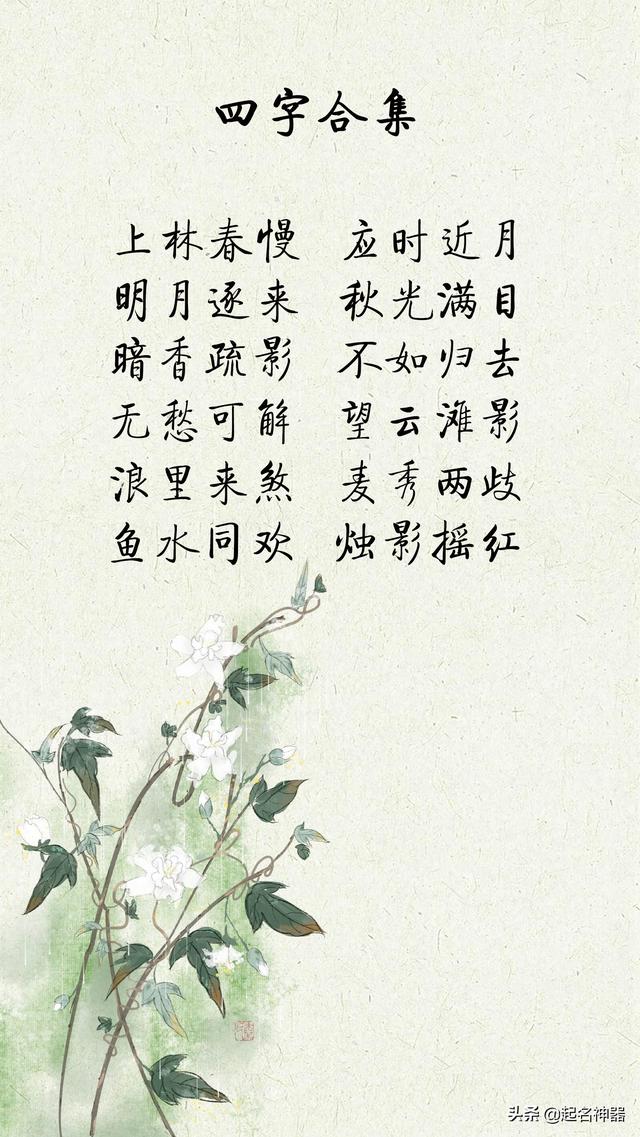 四字合集
上林春慢 应时近月
明月逐来 秋光满目
暗香疏影 不如归去
无愁可解 望云滩影
浪里来煞 麦秀两歧
鱼水同欢 烛影摇红
头条 @起名神器